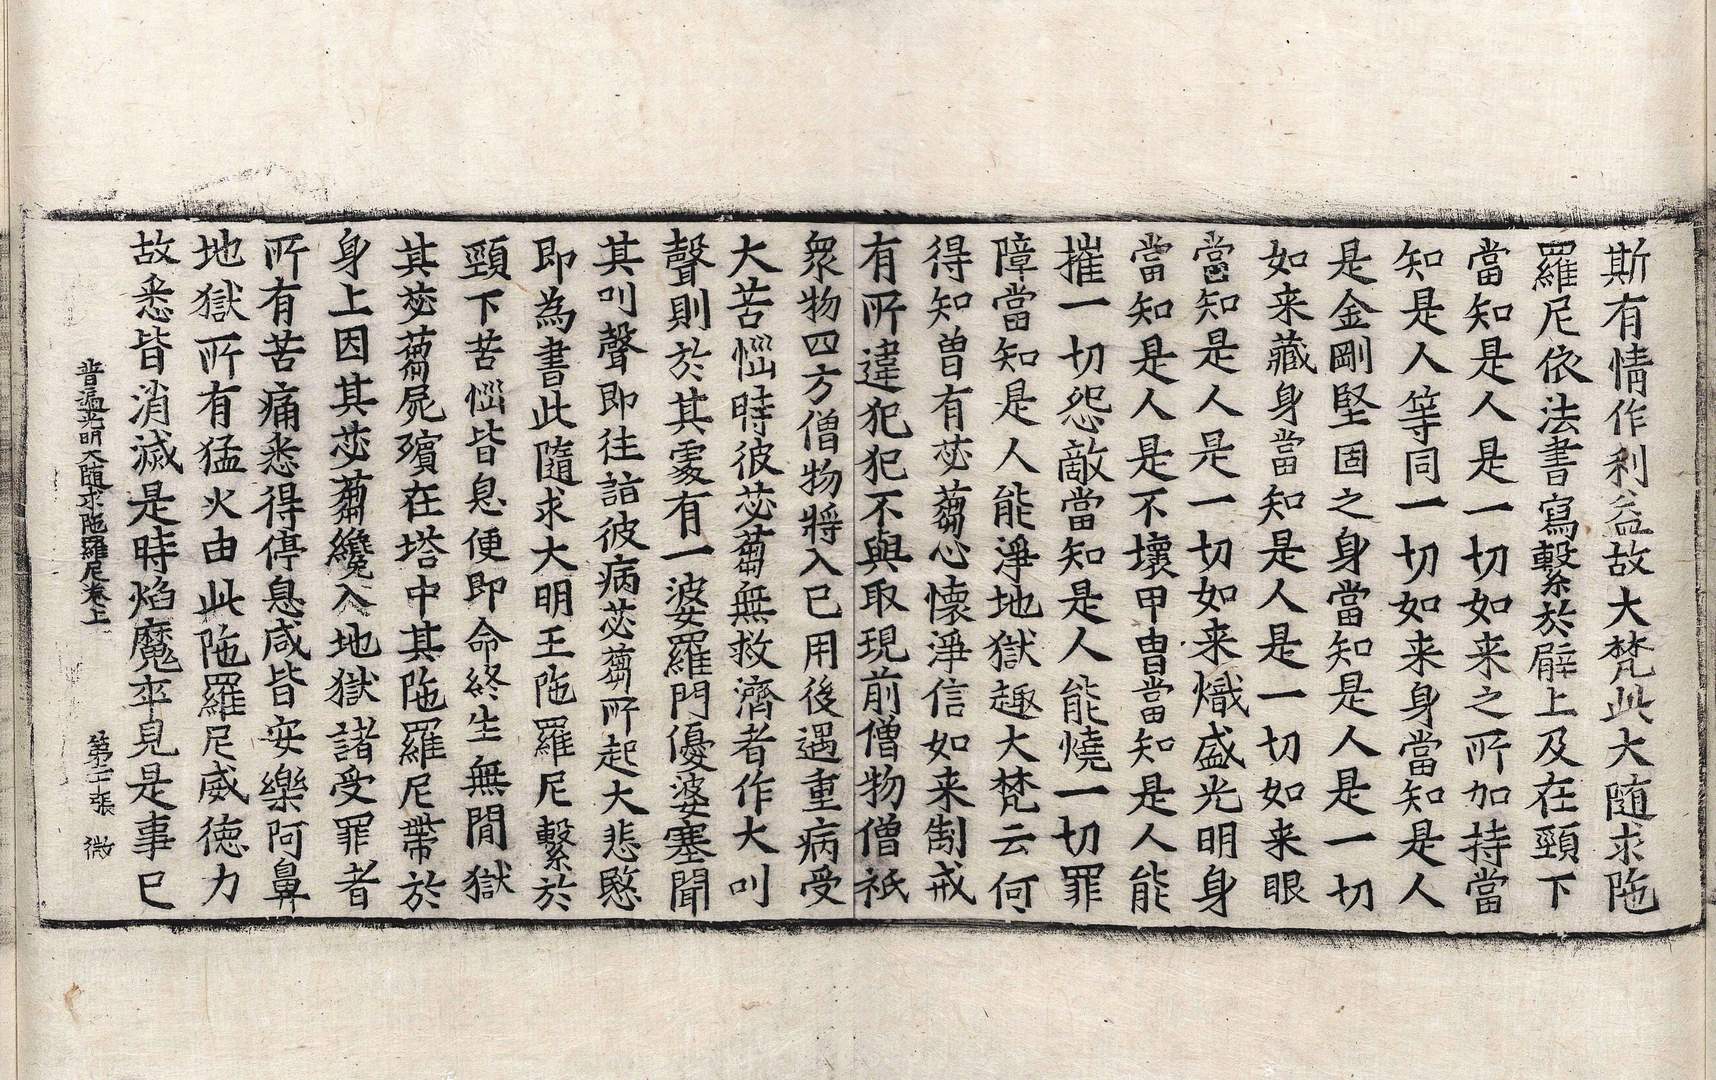 斯有情作利益故大梵此大随求陁
羅尼依法書寫繫於臂上及在頸下
當知是人是一切如来之所加持當
知是人等同一切如来身當知是人
是金剛堅固之身當知是人是一切
如来藏身當知是人是一切如来眼
當知是人是一切如来熾盛光明身
當知是人是不壞甲冑當知是人能
摧一切怨敵當知是人能燒一切罪
障當知是人能淨地獄趣大梵云何
得知曾有苾蒭心懷淨信如来制戒
有所違犯犯不與取現前僧物僧祇
衆物四方僧物將入已用後遇重病受
大苦惱時彼苾蒭無救濟者作大叫
聲則於其處有一婆羅門優婆塞聞
其叫聲即往詣彼病苾蒭所起大悲愍
即為書此隨求大明王陁羅尼繫於
頸下苦惱皆息便即命終生無間獄
其苾蒭屍殯在塔中其陁羅尼帶於
身上因其苾蒭纔入地獄諸受罪者
所有苦痛悉得停息咸皆安樂阿鼻
地獄所有猛火由此陁羅尼威德力
故悉皆消滅是時焰魔卒見是事已
普遍光明大随求陁羅尼卷上 第二十張 微